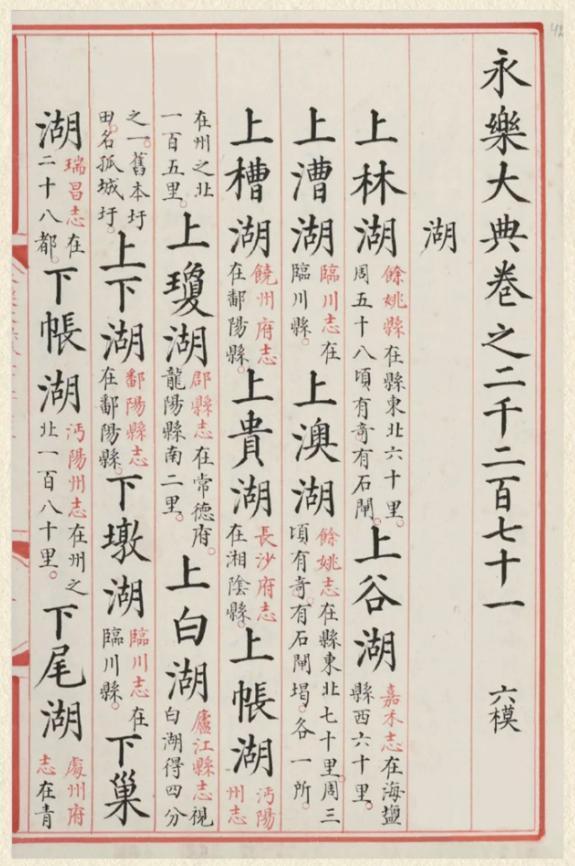 永樂大典卷之二千二百七十一 六模
湖
上林湖餘姚縣在縣東北六十里。周五十八頃有竒有石閘。上谷湖嘉禾志在海鹽縣西六十里。
上漕湖臨川志在臨川縣。上澳湖餘姚志在縣東北七十里。周三頃有竒。有石閘堨。各一所。
上槽湖饒州府志在鄱陽縣。上貴湖長沙府志在湘陰縣。上帳湖沔陽州志
在州之北一百五里。上瓊湖郡縣志在常德府。龍陽縣南二里。上白湖廬江縣志視白湖得四分
之一。舊本圩田名孤城圩。上下湖鄱陽縣志在鄱陽縣。下墩湖臨川志在臨川縣。下巢
湖瑞昌志在二十八都。下帳湖沔陽州志在州之北一百八十里。下尾湖處州府志在青